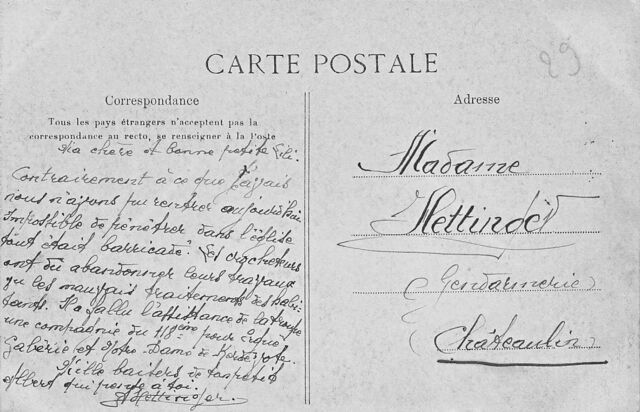 29
CARTE POSTALE
Correspondance
Tous les pays étrangers n'acceptent pas la
correspondance au recto, se renseigner à la Poste
Ma chère et bonne petite
Contrairement à ce que
nous n'avons pu rentrer aujourd'hui.
Impossible de pénétrer dans l'église
tout était barricadé. Les crocheteurs
ont dû abandonner leurs travaux
vu les mauvais traitements des habi-
tants. Il a fallu l'assistance de la troupe
une compagnie du 118ème pour Ergué
Gabéric et Notre-Dame de Kerdévote.
Mille baisers de ton petit
Albert qui pense à toi.
AHettinger
Adresse
Madame
Gendarmerie
Châteaulin